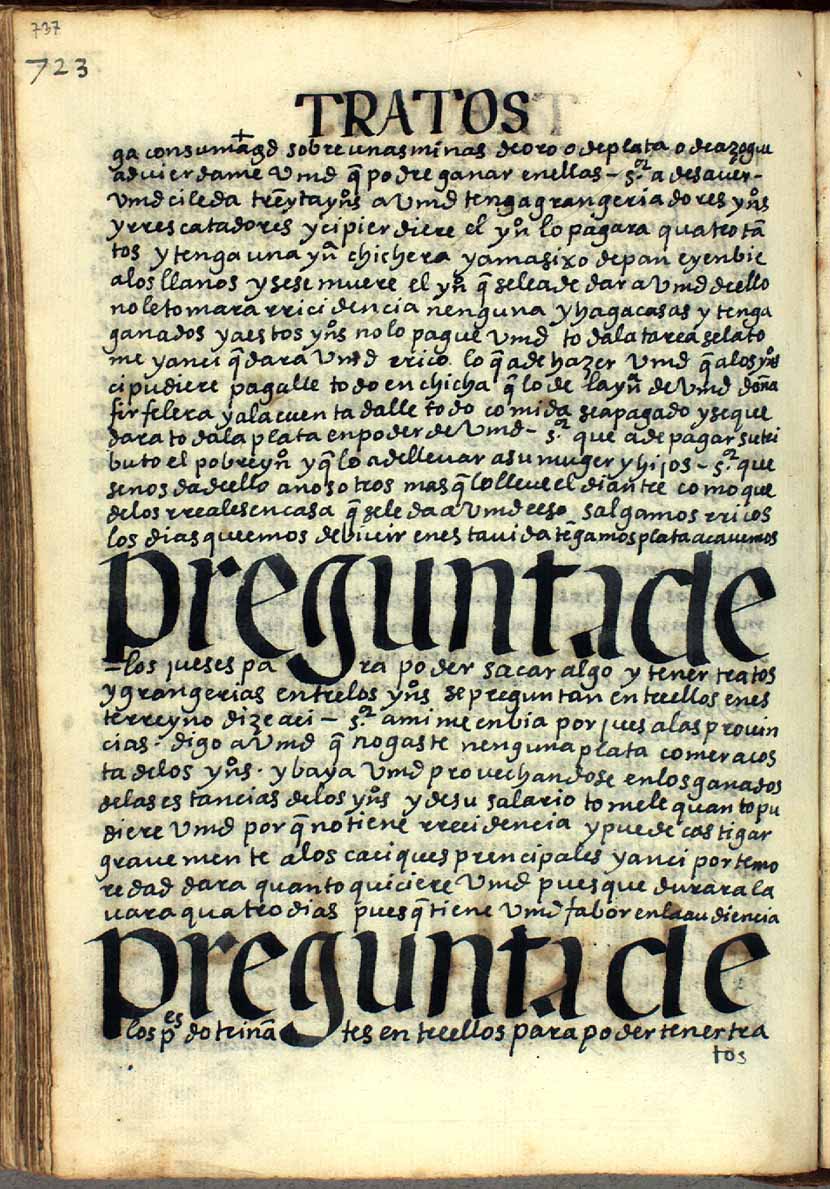 737
723
TRATOS
ga con su mag̃d sobre unas minas de oro o de plata o de azogue
advierdame Vmd q̃ podre ganar en ellas - s.or a de saver -
Vmd ci le da treynta yn̊s a Vmd tenga grangeriadores yn̊s
y rrescatadores y ci pierdiere el yn̊ lo pagara quatro tã
tos y tenga una yn̄a chichera y amasixo de pan ey enbie
a los llanos y se se muere el yn̊ q̃ se le a de dar a Vmd dello
no le tomara rricidencia nenguna y haga casas y tenga
ganados y a estos yn̊s no lo pague Vmd toda la tarea se la to
me y anci q̃dara Vmd rrico lo q̃ a de hazer Vmd q̃ a los yn̊s
ci pudiere pagalle todo en chicha q̃ lo de la yn̄a de Vmd doña
firfelera y a la cuenta dalle todo comida sea pagado y se que
dara toda la plata en poder de Vmd - s.or que a de pagar su tri
buto el pobre yn̊ y q̃ lo a de llevar a su muger y hijos - s.or que
se nos da dello a nosotros mas q̃ lo lleve el diantre como que
de los rreales en casa q̃ se le da a Vmd eso salgamos rricos
los dias que emos de bivir en esta vida tẽgamos plata acavemos
pregunta de
- los jueses pa ra poder sacar algo y tener tratos
y grangerias entre los yn̊s se preguntan entre ellos en es
te rreyno dize aci - s.or a mi me enbia por jues a las provin
cias - digo a Vmd q̃ no gaste nenguna plata comer a cos
ta de los yn̊s - y baya Vmd provechandose en los ganados
de las estancias de los yn̊s y de su salario tomele quanto pu
diere Vmd por q̃ no tiene rrecidencia y puede castigar
gravemente a los caciques prencipales y anci por temo
redad dara quanto quiciere Vmd pues que durara la
vara quatro dias pues q̃ tiene Vmd fabor en la audiencia
pregunta de
los p.es dotrinã tes entre ellos para poder tener tra
tos